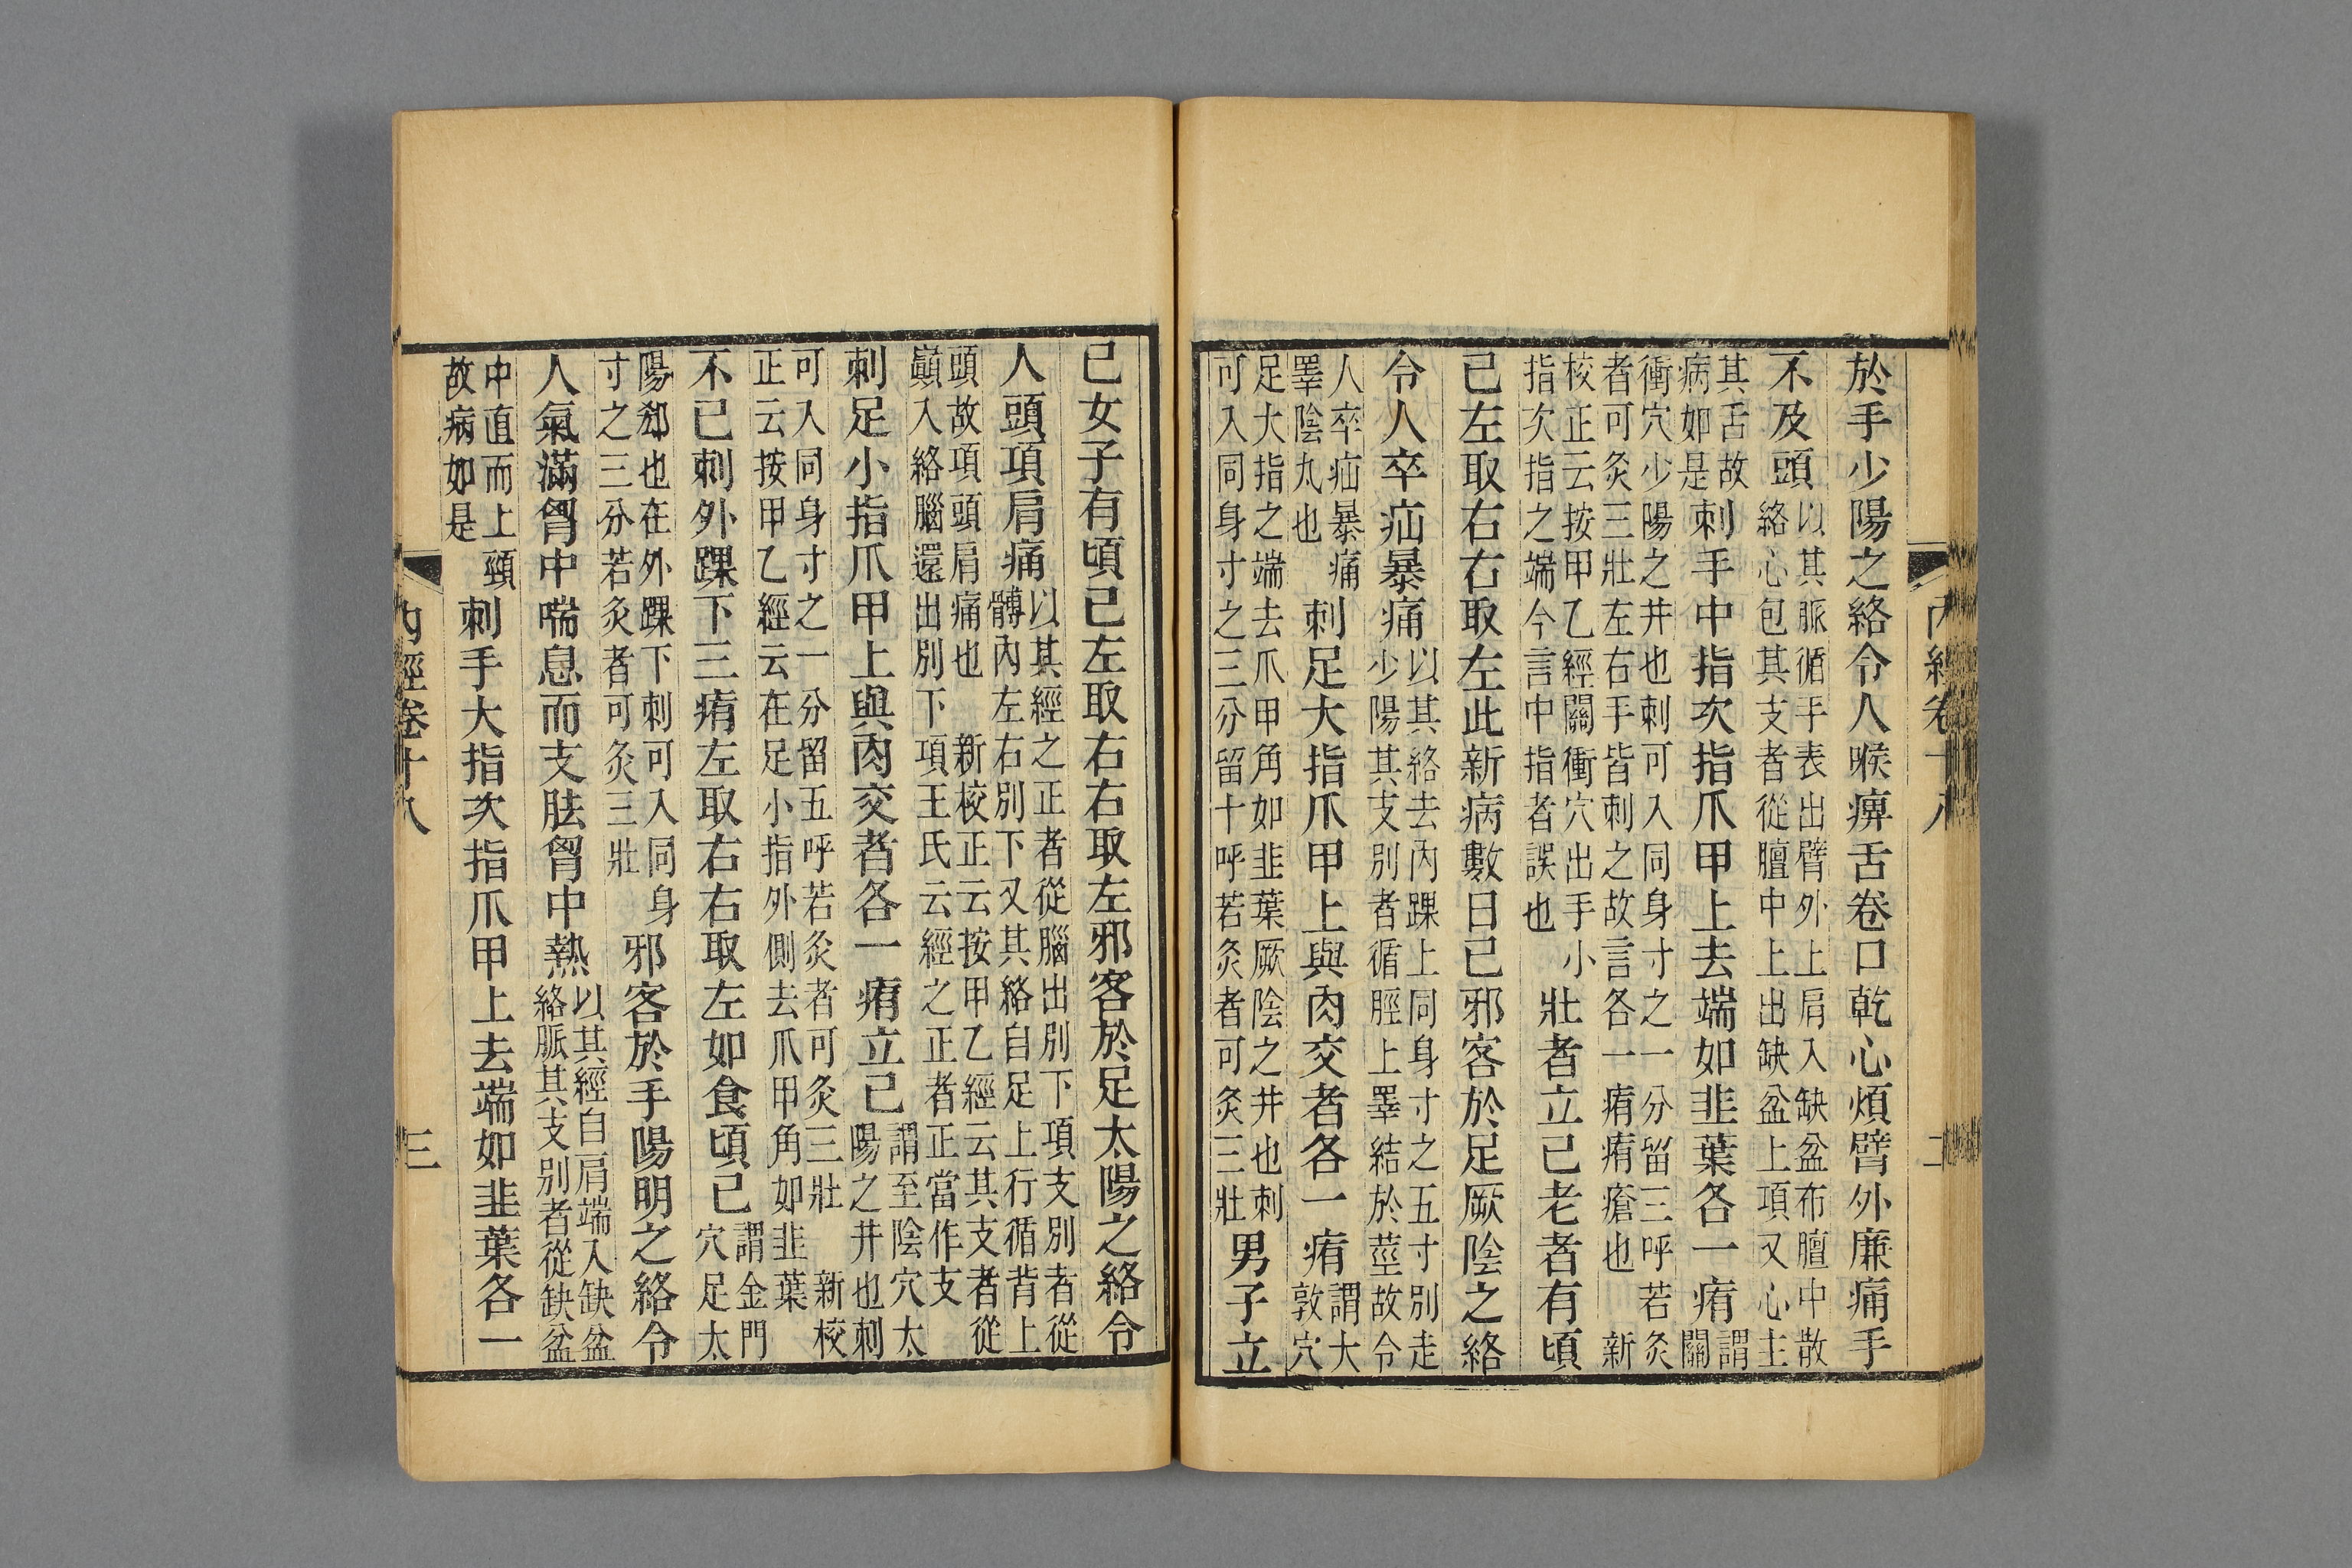 內經卷十八 二
於手少陽之絡令人喉痹舌卷口乾心煩臂外廉痛手
不及頭以其脈循手表出臂外上肩入缺盆布膻中散絡心包其支者從膻中上出缺盆上項又心主
其舌故病如是刺手中指次指爪甲上去端如韭葉各一痏謂關
衝穴少陽之井也刺可入同身寸之一分留三呼若灸者可灸三壯左右手皆刺之故言各一痏痏瘡也 新
校正云按甲乙經關衝穴出手小指次指之端今言中指者誤也壯者立已老者有頃
已左取右右取左此新病數日已邪客於足厥陰之絡
令人卒疝暴痛以其絡去內踝上同身寸之五寸別走少陽其支別者循脛上睪結於莖故令
人卒疝暴痛睪陰丸也刺足大指爪甲上與肉交者各一痏謂大敦穴
足大指之端去爪甲角如韭葉厥陰之井也刺可入同身寸之三分留十呼若灸者可灸三壯男子立
已女子有頃已左取右右取左邪客於足太陽之絡令
人頭項肩痛以其經之正者從腦出別下項支別者從髆內左右別下又其絡自足上行循背上
頭故項頭肩痛也 新校正云按甲乙經云其支者從巔入絡腦還出別下項王氏云經之正者正當作支
刺足小指爪甲上與肉交者各一痏立已謂至陰穴太陽之井也刺
可入同身寸之一分留五呼若灸者可灸三壯 新校正云按甲乙經云在足小指外側去爪甲角如韭葉
不已刺外踝下三痏左取右右取左如食頃已謂金門穴足太
陽郄也在外踝下刺可入同身寸之三分若灸者可灸三壯邪客於手陽明之絡令
人氣滿胷中喘息而支胠胷中熱以其經自肩端入缺盆絡脈其支別者從缺盆
中直而上頸故病如是刺手大指次指爪甲上去端如韭葉各一
內經卷十八 三